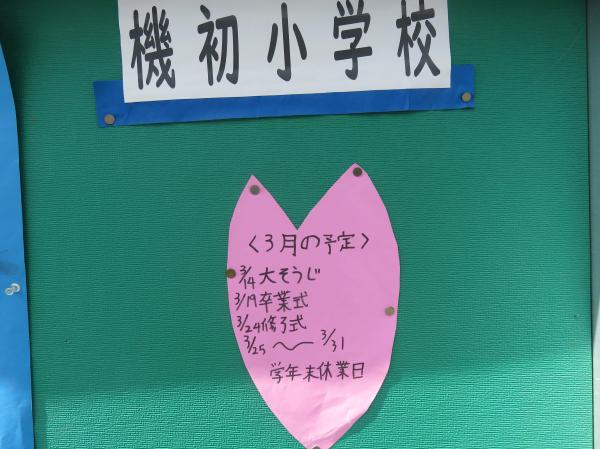 機初小学校
〈3月の予定〉
3/14大そうじ
3/19卒業式
3/24修了式
3/25 〜 3/31
学年末休業日